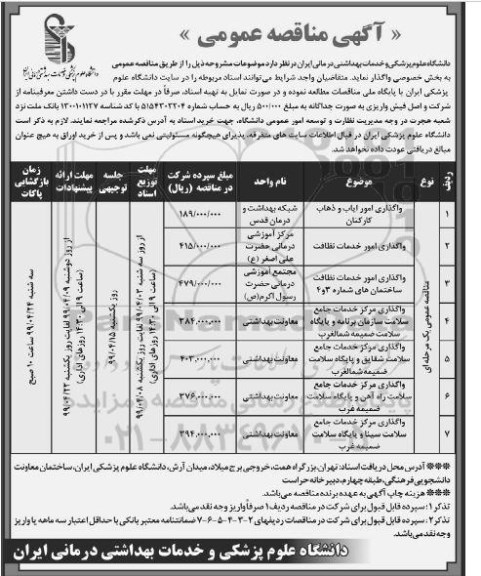 « آگهی مناقصه عمومی »
دانشگاه علوم پزشکی و خدمات بهداشتی درمانی ایران
دانشگاه علوم پزشکی و خدمات بهداشتی درمانی ایران در نظر دارد موضوعات مشروحه ذیل را از طریق مناقصه عمومی
به بخش خصوصی واگذار نماید. متقاضیان واجد شرایط می‌توانند اسناد مربوطه را در سایت دانشگاه علوم
پزشکی ایران با پایگاه ملی مناقصات مطالعه نموده و در صورت تمایل به تهیه اسناد، صرفاً در مهلت مقرر با در دست داشتن معرفینامه از
شرکت و اصل فیش واریزی به صورت جداگانه به مبلغ ۵۰۰/۰۰۰ ریال به حساب شماره ۵۱۵۴۳۰۲۲۰۴ با کد شناسه ۱۳۰۰۱۰۱۱۲۷ بانک ملت نزد
شعبه هجرت در وجه مدیریت نظارت و توسعه امور عمومی دانشگاه، جهت خرید اسناد به آدرس ذکرشده مراجعه نمایند. لازم به ذکر است
دانشگاه علوم پزشکی ایران در قبال اطلاعات سایت های متفرقه، پذیرای هیچگونه مسئولیتی نمی باشد و پس از خرید اوراق به هیچ عنوان
مبالغ دریافتی عودت داده نخواهد شد.
ردیف نوع موضوع نام واحد مبلغ سپرده شرکت در مناقصه (ریال) مهلت توزیع اسناد جلسه توجیهی مهلت ارائه پیشنهادات زمان بازگشایی پاکات
مناقصه عمومی یک مرحله ای
۱ واگذاری امور ایاب و ذهاب کارکنان شبکه بهداشت و درمان قدس ۱۸۹/۰۰۰/۰۰۰
۲ واگذاری امور خدمات نظافت مرکز آموزشی درمانی حضرت علی اصغر (ع) ۴۱۵/۰۰۰/۰۰۰
۳ واگذاری امور خدمات نظافت ساختمان های شماره ۳و۴ مجتمع آموزشی درمانی حضرت رسول اکرم(ص) ۴۷۹/۰۰۰/۰۰۰
۴ واگذاری مرکز خدمات جامع سلامت سازمان برنامه و پایگاه سلامت ضمیمه شمالغرب معاونت بهداشتی ۳۸۴/۰۰۰/۰۰۰
۵ واگذاری مرکز خدمات جامع سلامت شقایق و پایگاه سلامت ضمیمه شمالغرب معاونت بهداشتی ۴۰۳/۰۰۰/۰۰۰
۶ واگذاری مرکز خدمات جامع سلامت راه آهن و پایگاه سلامت ضمیمه غرب معاونت بهداشتی ۳۷۶/۰۰۰/۰۰۰
۷ واگذاری مرکز خدمات جامع سلامت سینا و پایگاه سلامت ضمیمه غرب معاونت بهداشتی ۳۹۴/۰۰۰/۰۰۰
از روز سه شنبه ۹۹/۰۴/۰۳ لغایت روز یکشنبه ۹۹/۰۴/۰۸ (ساعت ۹ الی ۱۴:۳۰ روزهای اداری)
روز یکشنبه ۹۹/۰۴/۱۵
از روز دوشنبه ۹۹/۰۴/۰۹ لغایت روز یکشنبه ۹۹/۰۴/۲۲ (ساعت ۹ الی ۱۴:۳۰ روزهای اداری)
سه شنبه ۹۹/۰۴/۲۴ ساعت ۱۰ صبح
۰۲۱-۸۸۳۴۹۶۷۰
*** آدرس محل دریافت اسناد: تهران، بزرگراه همت، خروجی برج میلاد، میدان آرش، دانشگاه علوم پزشکی ایران، ساختمان معاونت
دانشجویی فرهنگی، طبقه چهارم، دبیرخانه حراست
*** هزینه چاپ آگهی به عهده برنده مناقصه می‌باشد.
تذکر۱: سپرده قابل قبول برای شرکت در مناقصه ردیف ۱ صرفاً واریز وجه نقد می‌باشد.
تذکر۲: سپرده قابل قبول برای شرکت در مناقصات ردیفهای ۲-۳-۴-۵-۶-۷ ضمانتنامه معتبر بانکی با حداقل اعتبار سه ماهه یا واریز
وجه نقد می‌باشد.
دانشگاه علوم پزشکی و خدمات بهداشتی درمانی ایران